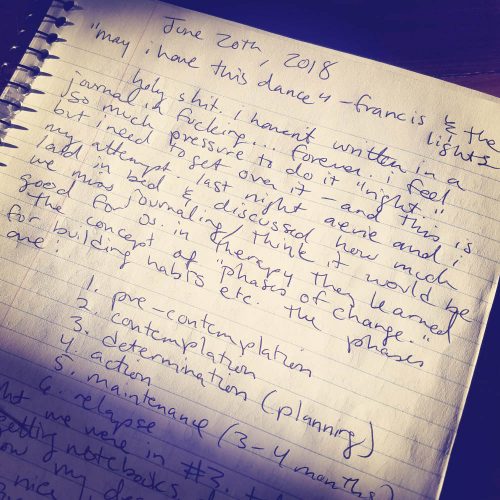 June 20th, 2018
"may i have this dance" - francis & the
lights
holy shit. i haven't written in a
journal in fucking... forever. i feel
so much pressure to do it "right"...
but i need to get over it - and this is
my attempt. last night and i
laid in bed & discussed how much
we miss journaling/think it would be
good for us. in therapy they learned
the concept of "phases of change."
for building habits etc. the phases
are:
1. pre-contemplation
2. contemplation
3. determination (planning)
4. action
5. maintenance (3-4 months)
6. relapse
we were in #3.
getting notebooks
my
nice